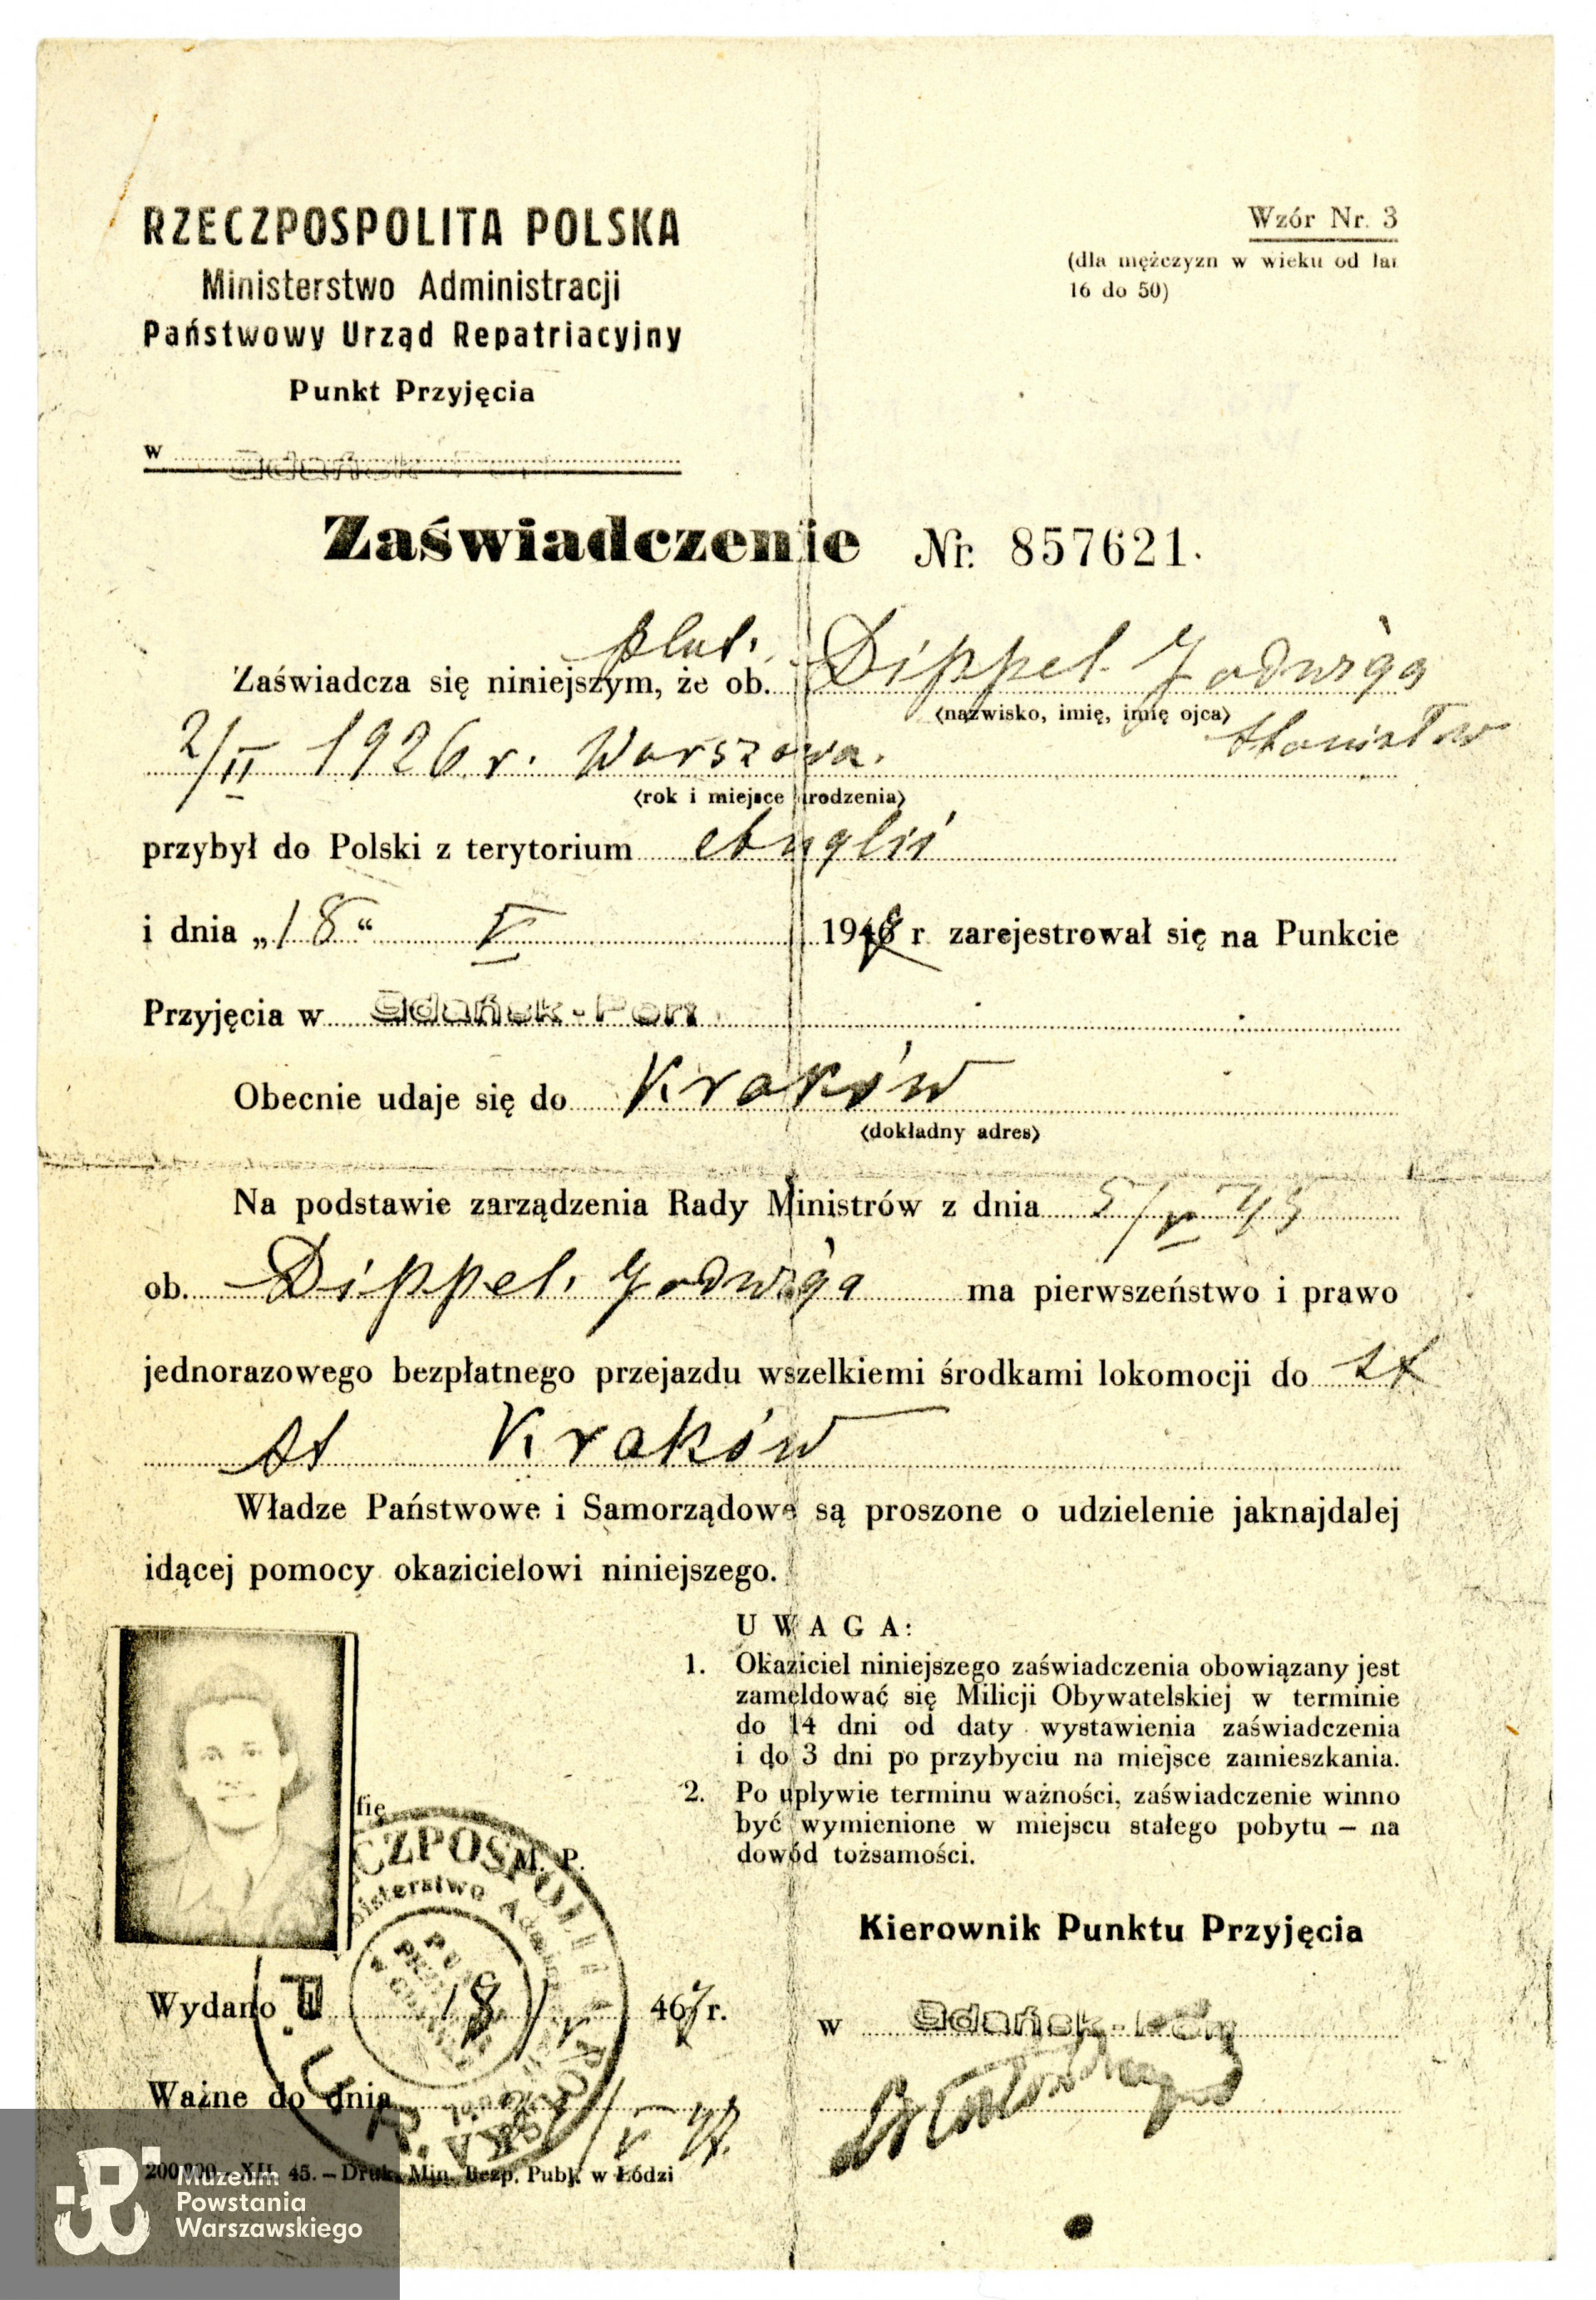 RZECZPOSPOLITA POLSKA
Ministerstwo Administracji
Państwowy Urząd Repatriacyjny
Punkt Przyjęcia
w
Wzór Nr. 3
(dla mężczyzn w wieku od lat
16 do 50)
Zaświadczenie Nr. 857621.
plut.
Zaświadcza się niniejszym, że ob. Dippel Jadwiga
(nazwisko, imię, imię ojca)
Stanisław
2/II 1926 r. Warszawa.
(rok i miejsce urodzenia)
przybył do Polski z terytorium Anglii
i dnia „18“ V 194 r zarejestrował się na Punkcie
Przyjęcia w Gdańsk-Port
Obecnie udaje się do Kraków
(dokładny adres)
Na podstawie zarządzenia Rady Ministrów z dnia 5/V 45
ob. Dippel Jadwiga ma pierwszeństwo i prawo
jednorazowego bezpłatnego przejazdu wszelkiemi środkami lokomocji do st
st Kraków
Władze Państwowe i Samorządowe są proszone o udzielenie jaknajdalej
idącej pomocy okazicielowi niniejszego.
UWAGA:
1. Okaziciel niniejszego zaświadczenia obowiązany jest
zameldować się Milicji Obywatelskiej w terminie
do 14 dni od daty wystawienia zaświadczenia
i do 3 dni po przybyciu na miejsce zamieszkania.
2. Po upływie terminu ważności, zaświadczenie winno
być wymienione w miejscu stałego pobytu — na
dowód tożsamości.
fię
M. P.
Kierownik Punktu Przyjęcia
Wydano 18/V 467 r.
w Gdańsk-Port
Ważne do dnia /V 47.
200.000 — XII. 45. — Druk. Min. Bezp. Publ. w Łodzi
Muzeum
Powstania
Warszawskiego